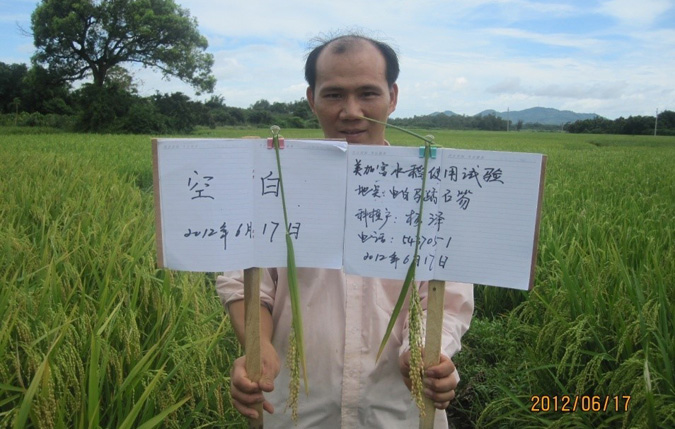 空白
2012年6月17日
美加富水稻使用试验
地点:电白
种植户:杨泽
电话:5427051
2012年6月17日
2012/06/17